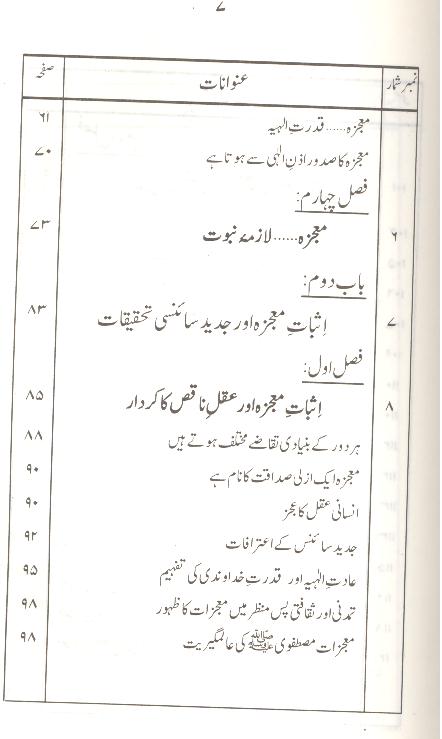 ۷
نمبر شمار عنوانات صفحہ
معجزہ...... قدرتِ الٰہیہ ۶۱
معجزہ کا صدور اذنِ الٰہی سے ہوتا ہے ۷۰
فصل چہارم:
۶ معجزہ...... لازمۂ نبوت ۷۳
باب دوم:
۷ اِثباتِ معجزہ اور جدید سائنسی تحقیقات ۸۳
فصل اول:
۸ اِثباتِ معجزہ اور عقلِ ناقص کا کردار ۸۵
ہر دور کے بنیادی تقاضے مختلف ہوتے ہیں ۸۸
معجزہ ایک ازلی صداقت کا نام ہے ۹۰
انسانی عقل کا عجز ۹۰
جدید سائنس کے اعترافات ۹۲
عادتِ الٰہیہ اور قدرتِ خداوندی کی تفہیم ۹۵
تمدنی اور ثقافتی پس منظر میں معجزات کا ظہور ۹۸
معجزات مصطفوی ﷺ کی عالمگیریت ۹۸